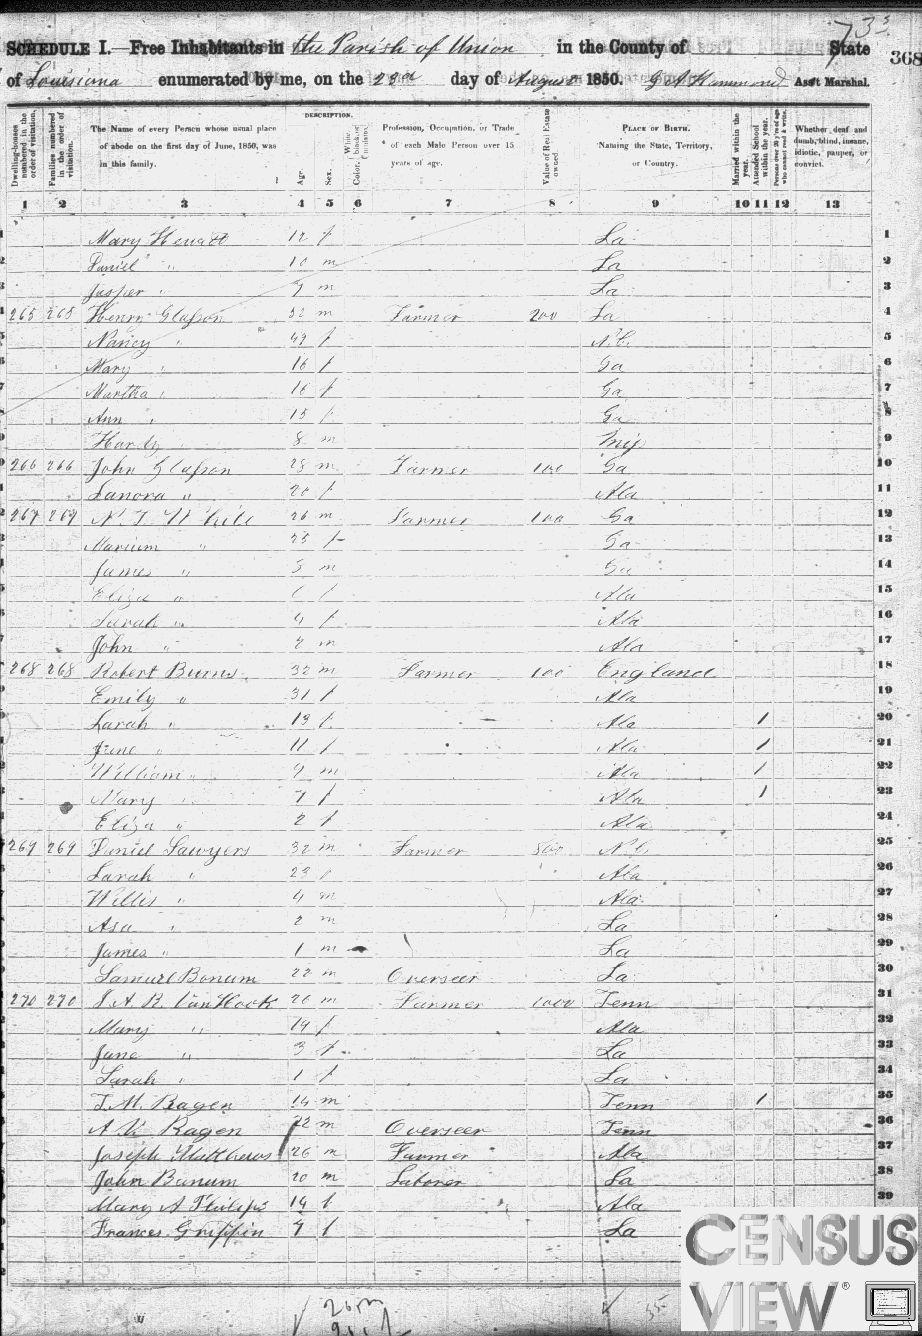 735
368
SCHEDULE I.—Free Inhabitants in the Parish of Union in the County of State
of Louisiana enumerated by me, on the 23d day of August 1850. G A Hammond Ass't Marshal.
Dwelling-houses numbered in the order of visitation.
Families numbered in the order of visitation.
The Name of every Person whose usual place of abode on the first day of June, 1850, was in this family.
DESCRIPTION.
Age.
Sex.
White, black, or mulatto.
Color,
Profession, Occupation, or Trade of each Male Person over 15 years of age.
Value of Real Estate owned
PLACE OF BIRTH.
Naming the State, Territory, or Country.
Married within the year.
Attended School within the year.
Persons over 20 y'rs of age who cannot read & write.
Whether deaf and dumb, blind, insane, idiotic, pauper, or convict.
1 2 3 4 5 6 7 8 9 10 11 12 13
Mary 12 f La 1
Daniel " 10 m La 2
Jasper " 7 m La 3
265 265 Henry Glasson m Farmer 200 La 4
Nancy " 49 f N.C. 5
Mary " 16 f Ga 6
Martha " 16 f Ga 7
Ann " 15 f Ga 8
Hardy 8 m Mis 9
266 266 John Glasson 28 m Farmer 100 Ga 10
Lanora " 20 f Ala 11
267 267 N. T. White 26 m Farmer 100 Ga 12
Marium " 25 f Ga 13
James " 5 m Ga 14
Eliza " f Ala 15
Sarah " 4 f Ala 16
John " 2 m Ala 17
268 268 Robert Burns 32 m Farmer 100 England 18
Emily " 31 f Ala 19
Sarah " 13 f Ala / 20
June " 11 f Ala / 21
William " 9 m Ala / 22
Mary " 7 f Ala / 23
Eliza " 2 f Ala 24
269 269 Daniel Sawyers 32 m Farmer 500 N C 25
Sarah " 23 f Ala 26
Willis " 4 m Ala 27
Asa " 2 m La 28
James " 1 m La 29
Samuel Bonum 22 m Overseer La 30
270 270 J. A. R. VanHook 26 m Farmer 1000 Tenn 31
Mary " 19 f Ala 32
June " 3 f La 33
Sarah " 1 f La 34
T. M. Ragen 14 m Tenn / 35
A. K. Ragen 22 m Overseer Tenn 36
Joseph Matthews 26 m Farmer Ala 37
John Banum 20 m Laborer La 38
Mary A Philips 14 f Ala 39
Frances Griffin 7 f La
26 m
CENSUS
VIEW®